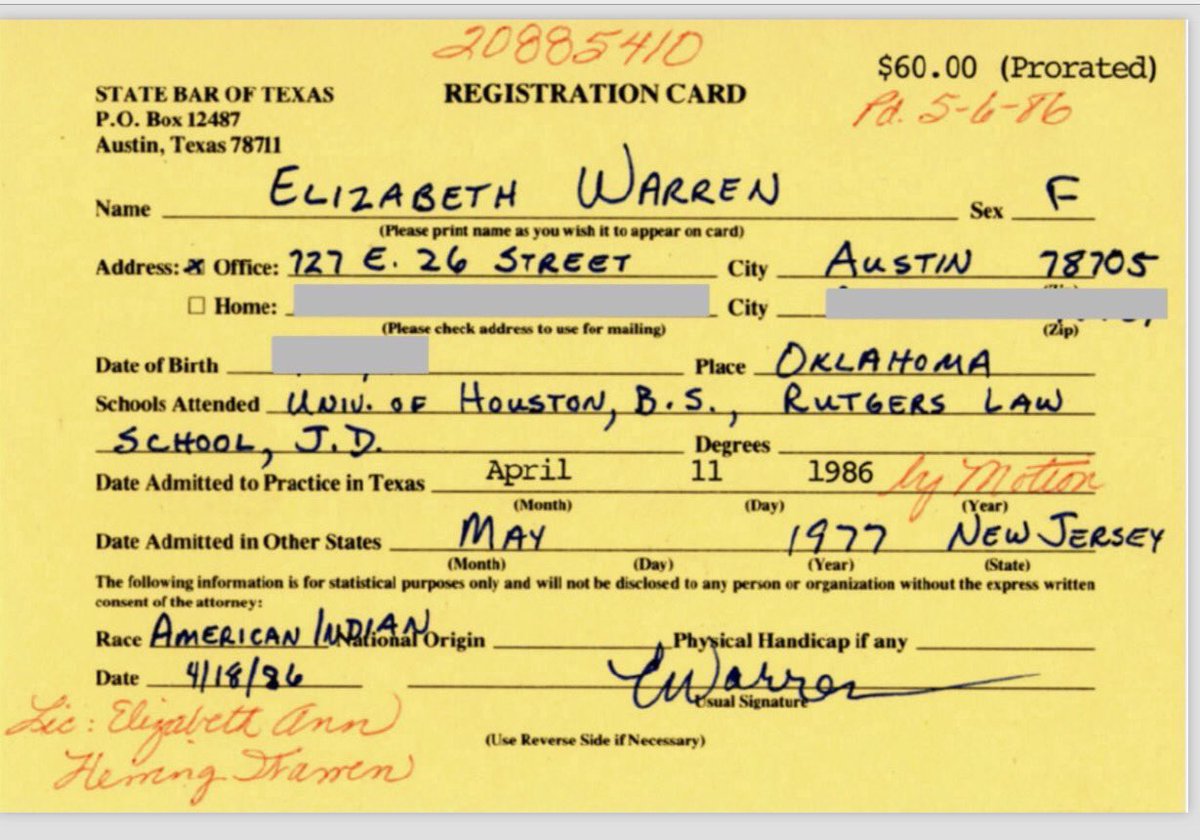 20885410
$60.00 (Prorated)
STATE BAR OF TEXAS REGISTRATION CARD
Pd. 5-6-86
P.O. Box 12487
Austin, Texas 78711
Name ELIZABETH WARREN Sex F
(Please print name as you wish it to appear on card)
Address: Office: 727 E. 26 STREET City AUSTIN 78705
Home: City
(Please check address to use for mailing) (Zip)
Date of Birth Place OKLAHOMA
Schools Attended UNIV. OF HOUSTON, B.S., RUTGERS LAW
SCHOOL, J.D. Degrees
Date Admitted to Practice in Texas April 11 1986 by Motion
(Month) (Day) (Year)
Date Admitted in Other States MAY 1977 NEW JERSEY
(Month) (Day) (Year) (State)
The following information is for statistical purposes only and will not be disclosed to any person or organization without the express written
consent of the attorney:
Race AMERICAN INDIAN National Origin Physical Handicap if any
Date 4/18/86 EWarren
Usual Signature
Lic: Elizabeth Ann
Herring Warren
(Use Reverse Side if Necessary)